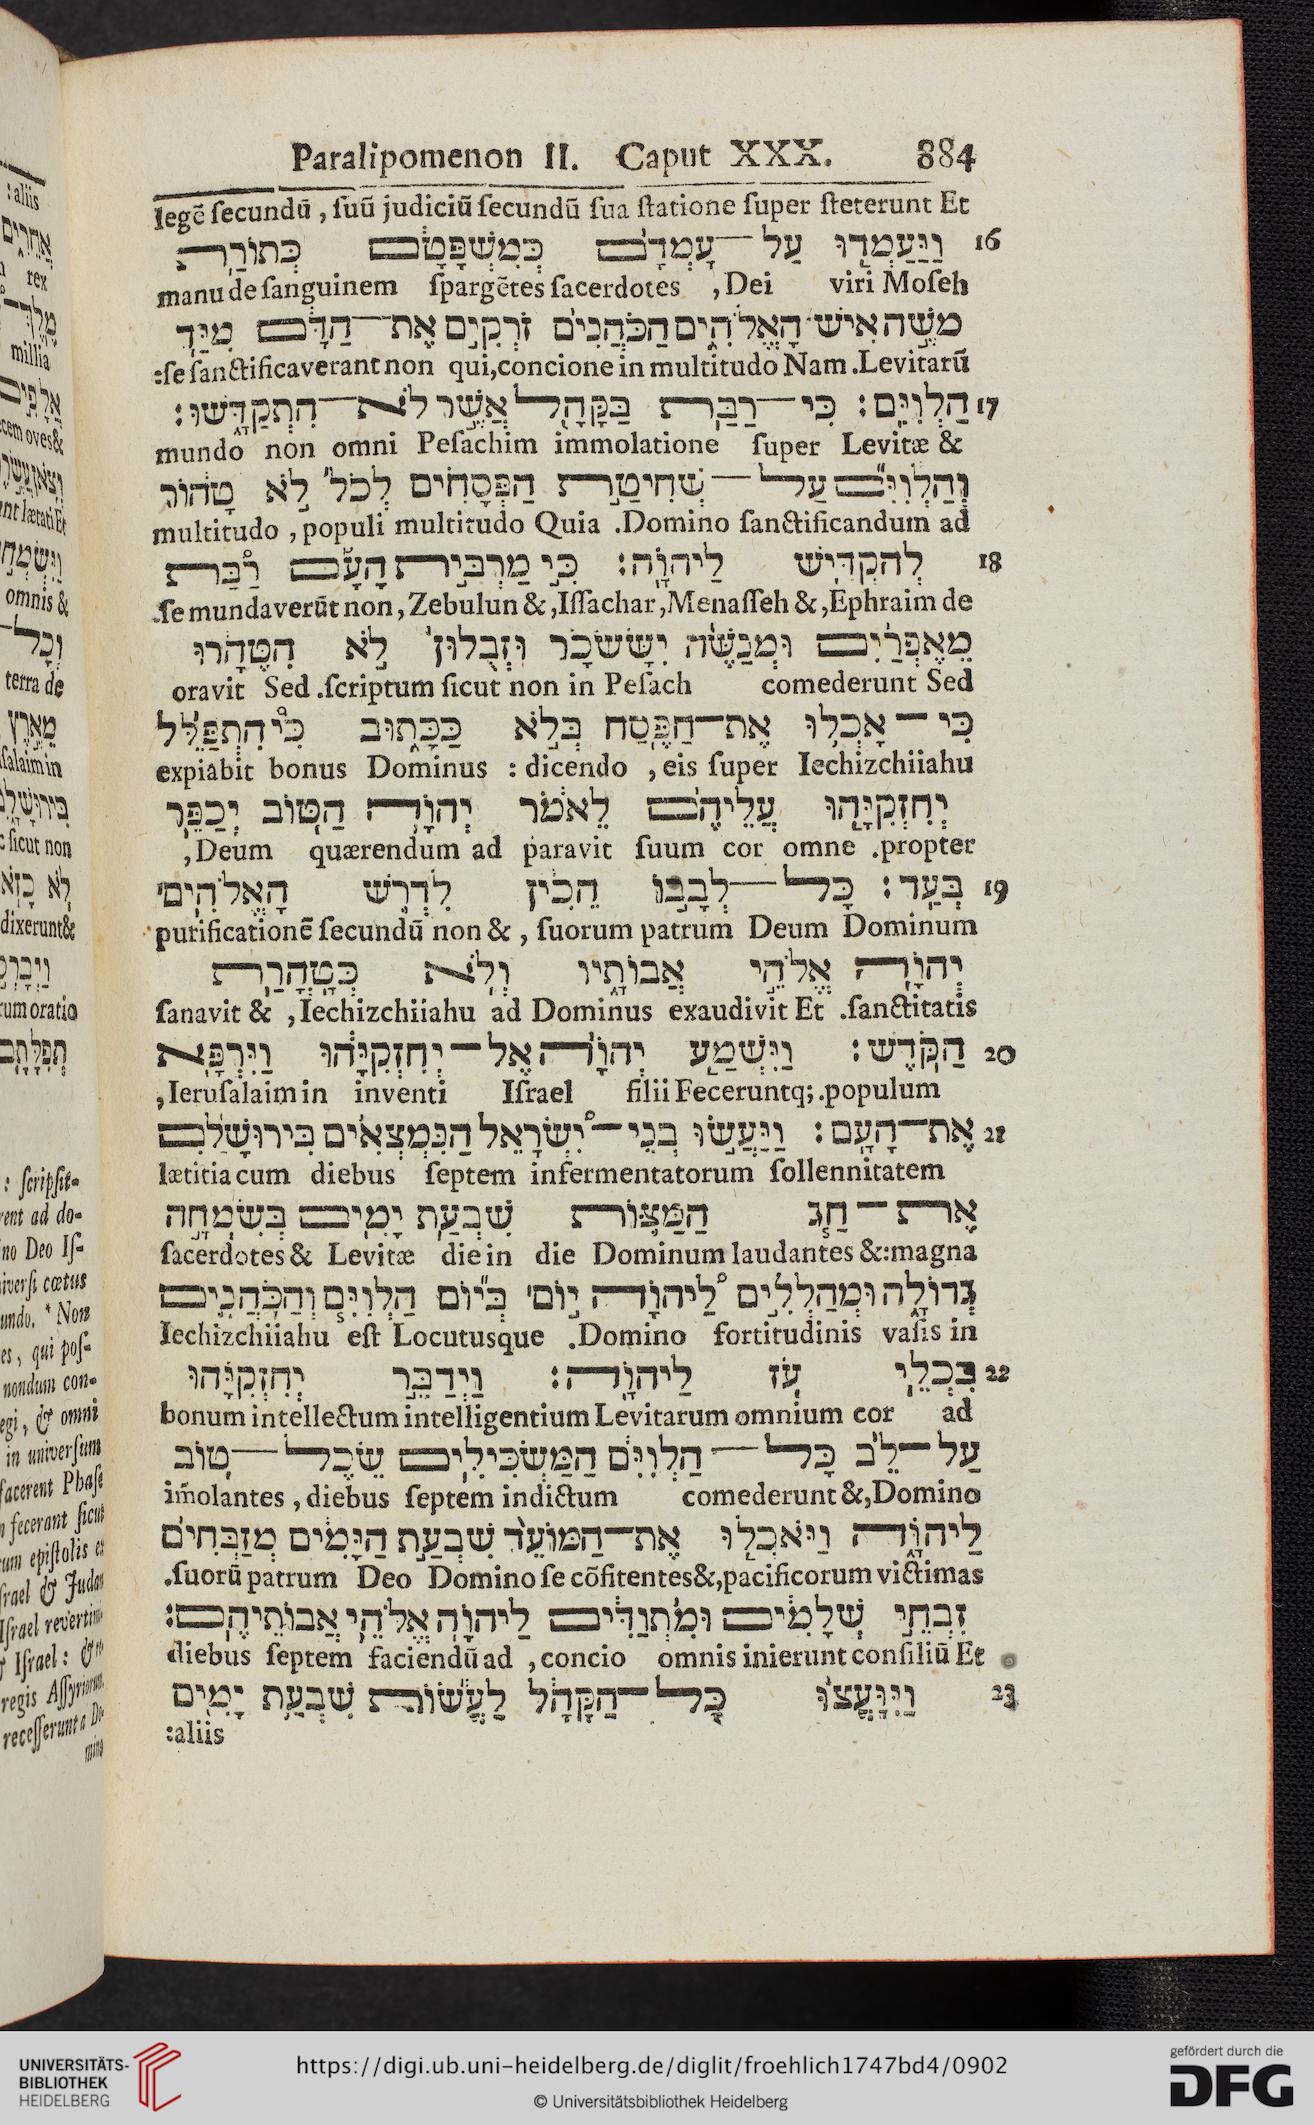 Paralipomenon II. Caput XXX. 884
legē ſecundū , ſuū judiciū ſecundū ſua ſtatione ſuper ſteterunt Et
וַיַּעַמְדוּ עַל־עָמְדָם כְּמִשְׁפָּטָם כְּתוֹרַת 16
manu de ſanguinem ſpargētes ſacerdotes , Dei viri Moſeh
מֹשֶׁה אִישׁ־הָאֱלֹהִים הַכֹּהֲנִים זֹרְקִים אֶת־הַדָּם מִיַּד
:ſe ſanctificaverant non qui, concione in multitudo Nam .Levitarū
הַלְוִיִּם׃ כִּי־רַבַּת בַּקָּהָל אֲשֶׁר לֹא־הִתְקַדָּשׁוּ׃ 17
mundo non omni Peſachim immolatione ſuper Levitæ &
וְהַלְוִיִּם עַל־שְׁחִיטַת הַפְּסָחִים לְכֹל לֹא טָהוֹר
multitudo , populi multitudo Quia .Domino ſanctificandum ad
לְהַקְדִּישׁ לַיהוָה׃ כִּי מַרְבִּית הָעָם רַבַּת 18
.ſe mundaverūt non, Zebulun & ,Iſſachar, Menaſſeh & ,Ephraim de
מֵאֶפְרַיִם וּמְנַשֶּׁה יִשָּׂשׂכָר וּזְבֻלוּן לֹא הִטֶּהָרוּ
oravit Sed .ſcriptum ſicut non in Peſach comederunt Sed
כִּי־אָכְלוּ אֶת־הַפֶּסַח בְּלֹא כַכָּתוּב כִּי הִתְפַּלֵּל
expiabit bonus Dominus : dicendo , eis ſuper Iechizchiiahu
יְחִזְקִיָּהוּ עֲלֵיהֶם לֵאמֹר יְהוָה הַטּוֹב יְכַפֵּר
,Deum quærendum ad paravit ſuum cor omne .propter
בְּעַד׃ כָּל־לְבָבוֹ הֵכִין לִדְרֹשׁ הָאֱלֹהִים 19
purificationē ſecundū non & , ſuorum patrum Deum Dominum
יְהוָה אֱלֹהֵי אֲבוֹתָיו וְלֹא כְּטָהֳרַת
ſanavit & , Iechizchiiahu ad Dominus exaudivit Et .ſanctitatis
הַקֹּדֶשׁ׃ וַיִּשְׁמַע יְהוָה אֶל־יְחִזְקִיָּהוּ וַיִּרְפָּא 20
,Ieruſalaim in inventi Iſrael filii Feceruntq; .populum
אֶת־הָעָם׃ וַיַּעֲשׂוּ בְנֵי־יִשְׂרָאֵל הַנִּמְצְאִים בִּירוּשָׁלִַם 21
lætitia cum diebus ſeptem infermentatorum ſollennitatem
אֶת־חַג הַמַּצּוֹת שִׁבְעַת יָמִים בְּשִׂמְחָה
ſacerdotes & Levitæ die in die Dominum laudantes & :magna
גְדוֹלָה וּמְהַלְלִים לַיהוָה יוֹם בְּיוֹם הַלְוִיִּם וְהַכֹּהֲנִים
Iechizchiiahu eſt Locutusque .Domino fortitudinis vaſis in
בִּכְלֵי עֹז לַיהוָה׃ וַיְדַבֵּר יְחִזְקִיָּהוּ 22
bonum intellectum intelligentium Levitarum omnium cor ad
עַל־לֵב כָּל־הַלְוִיִּם הַמַּשְׂכִּילִים שֵׂכֶל־טוֹב
im̄olantes , diebus ſeptem indictum comederunt & ,Domino
לַיהוָה וַיֹּאכְלוּ אֶת־הַמּוֹעֵד שִׁבְעַת הַיָּמִים מְזַבְּחִים
.ſuorū patrum Deo Domino ſe cōfitentes & ,pacificorum victimas
זִבְחֵי שְׁלָמִים וּמִתְוַדִּים לַיהוָה אֱלֹהֵי אֲבוֹתֵיהֶם׃
diebus ſeptem faciendū ad , concio omnis inierunt conſiliū Et
וַיִּוָּעֲצוּ כָּל־הַקָּהָל לַעֲשׂוֹת שִׁבְעַת יָמִים 23
:aliis
UNIVERSITÄTS-
BIBLIOTHEK
HEIDELBERG
https://digi.ub.uni-heidelberg.de/diglit/froehlich1747bd4/0902
© Universitätsbibliothek Heidelberg
gefördert durch die
DFG